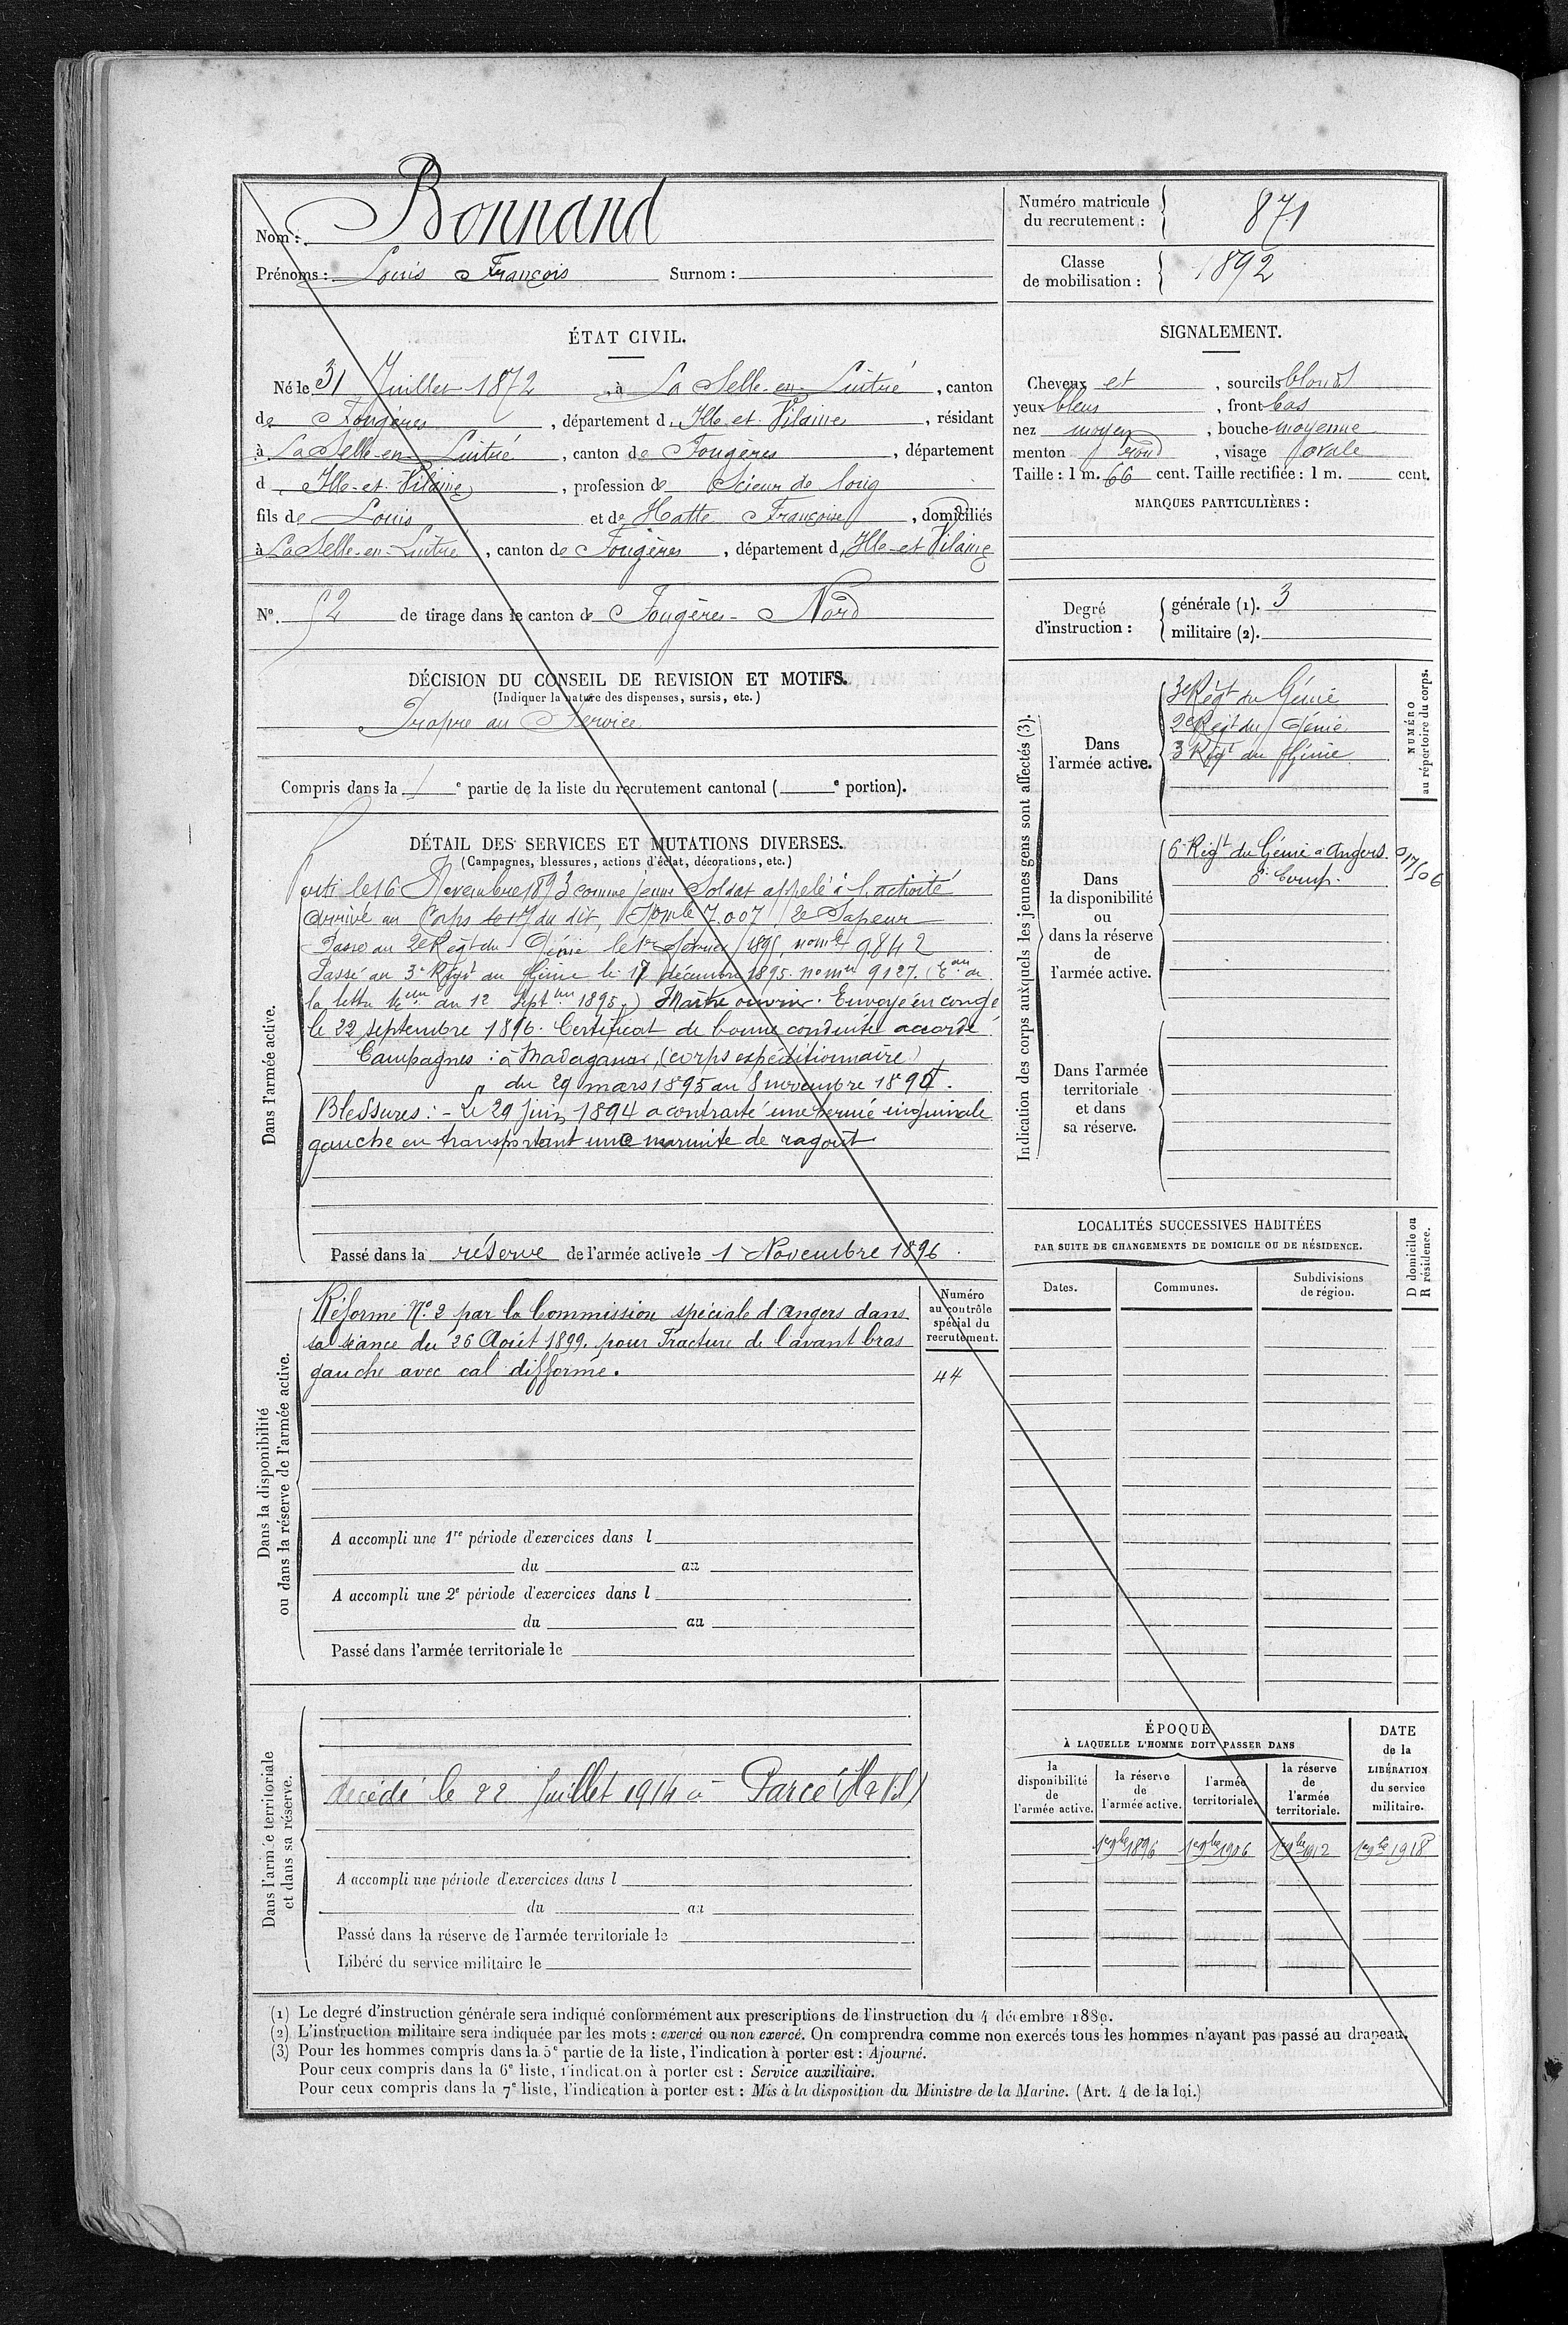 Nom : Bonnand
Prénoms : Louis François Surnom :
Numéro matricule
du recrutement : 871
Classe
de mobilisation : 1892
ÉTAT CIVIL.
Né le 31 Juillet 1872, à La Selle-en-Luitré, canton
de Fougères, département d'Ille-et-Vilaine, résidant
à La Selle-en-Luitré, canton de Fougères, département
d'Ille-et-Vilaine, profession de Scieur de long
fils de Louis et de Hatte Françoise, domiciliés
à La Selle-en-Luitré, canton de Fougères, département d'Ille-et-Vilaine
N°. 52 de tirage dans le canton de Fougères-Nord
SIGNALEMENT.
Cheveux et, sourcils blonds
yeux bleus, front bas
nez moyen, bouche moyenne
menton rond, visage ovale
Taille : 1 m. 66 cent. Taille rectifiée : 1 m. cent.
MARQUES PARTICULIÈRES :
Degré
d'instruction :
générale (1). 3
militaire (2).
DÉCISION DU CONSEIL DE REVISION ET MOTIFS.
(Indiquer la nature des dispenses, sursis, etc.)
Propre au Service
Compris dans la 1e partie de la liste du recrutement cantonal ( e portion).
DÉTAIL DES SERVICES ET MUTATIONS DIVERSES.
(Campagnes, blessures, actions d'éclat, décorations, etc.)
Dans l'armée active.
Parti le 16 Novembre 1893 comme jeune Soldat appelé à l'activité
Arrivé au Corps le 17 du dit, 7.007 2e Sapeur
Passé au 2e Régt du Génie le 1895, 9842
Passé au 3e Régt du Génie le 17 décembre 1895. no mle 9127. (Eon de
la lettre du 12 1895.) Maître ouvrier. Envoyé en congé
le 22 septembre 1896. Certificat de bonne conduite accordé.
Campagnes : à Madagascar, (corps expéditionnaire)
du 29 mars 1895 au 8 novembre
Blessures : - Le 29 juin 1894 a contracté une hernie inguinale
gauche en transportant une marmite de ragoût
Passé dans la réserve de l'armée active le 1 Novembre 1896.
Indication des corps auxquels les jeunes gens sont affectés (3).
NUMÉRO
au répertoire du corps.
Dans
l'armée active.
3e Régt du Génie
2e Régt du Génie
3 Régt du Génie
Dans
la disponibilité
ou
dans la réserve
de
l'armée active.
6e Régt du Génie à Angers
Comp.
Dans l'armée
territoriale
et dans
sa réserve.
LOCALITÉS SUCCESSIVES HABITÉES
PAR SUITE DE CHANGEMENTS DE DOMICILE OU DE RÉSIDENCE.
Dates.
Communes.
Subdivisions
de région.
D domicile ou
R résidence.
Dans la disponibilité
ou dans la réserve de l'armée active.
Réformé No. 2 par la Commission spéciale d'Angers dans
sa séance du 26 Août 1899. pour Fracture de l'avant bras
gauche avec cal difforme.
Numéro
au contrôle
spécial du
recrutement.
44
A accompli une 1re période d'exercices dans l
du au
A accompli une 2e période d'exercices dans l
du au
Passé dans l'armée territoriale le
Dans l'armée territoriale
et dans sa réserve.
décédé le 22 Juillet 1914 à Parcé (I & Vil)
A accompli une période d'exercices dans l
du au
Passé dans la réserve de l'armée territoriale le
Libéré du service militaire le
ÉPOQUE
À LAQUELLE L'HOMME DOIT PASSER DANS
la
disponibilité
de
l'armée active.
la réserve
de
l'armée active.
l'armée
territoriale.
la réserve
de
l'armée
territoriale.
DATE
de la
LIBÉRATION
du service
militaire.
1er 9bre 1896 1er 9bre 1906 1er 9bre 1912 1er 9bre 1918
(1) Le degré d'instruction générale sera indiqué conformément aux prescriptions de l'instruction du 4 décembre 1889.
(2) L'instruction militaire sera indiquée par les mots : exercé ou non exercé. On comprendra comme non exercés tous les hommes n'ayant pas passé au drapeau.
(3) Pour les hommes compris dans la 5e partie de la liste, l'indication à porter est : Ajourné.
Pour ceux compris dans la 6e liste, l'indication à porter est : Service auxiliaire.
Pour ceux compris dans la 7e liste, l'indication à porter est : Mis à la disposition du Ministre de la Marine. (Art. 4 de la loi.)